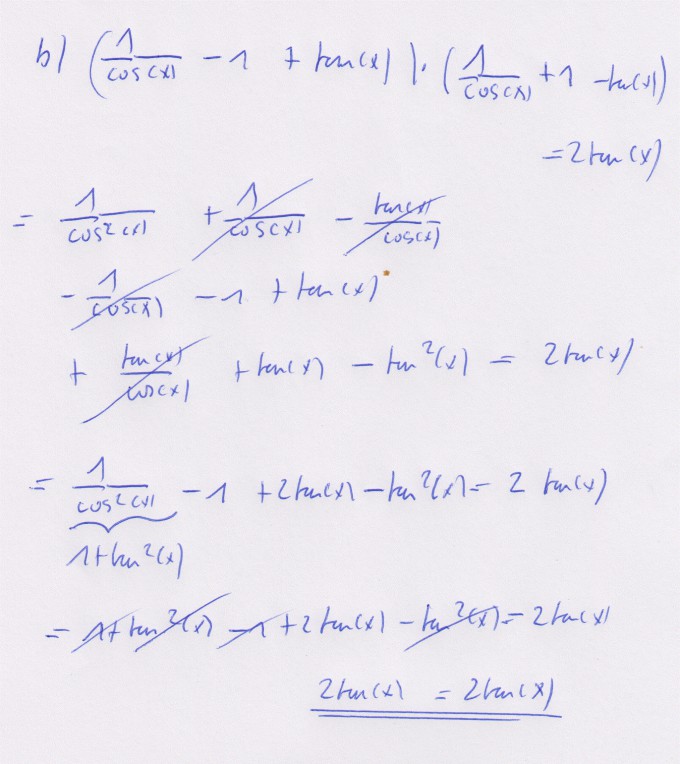 b) (1/cos(x) - 1 + tan(x)) · (1/cos(x) + 1 - tan(x))
= 2tan(x)
= 1/cos²(x) + 1/cos(x) - tan(x)/cos(x)
- 1/cos(x) - 1 + tan(x)
+ tan(x)/cos(x) + tan(x) - tan²(x) = 2tan(x)
= 1/cos²(x) - 1 + 2tan(x) - tan²(x) = 2 tan(x)
1+tan²(x)
= 1+tan²(x) - 1 + 2tan(x) - tan²(x) = 2tan(x)
2tan(x) = 2tan(x)